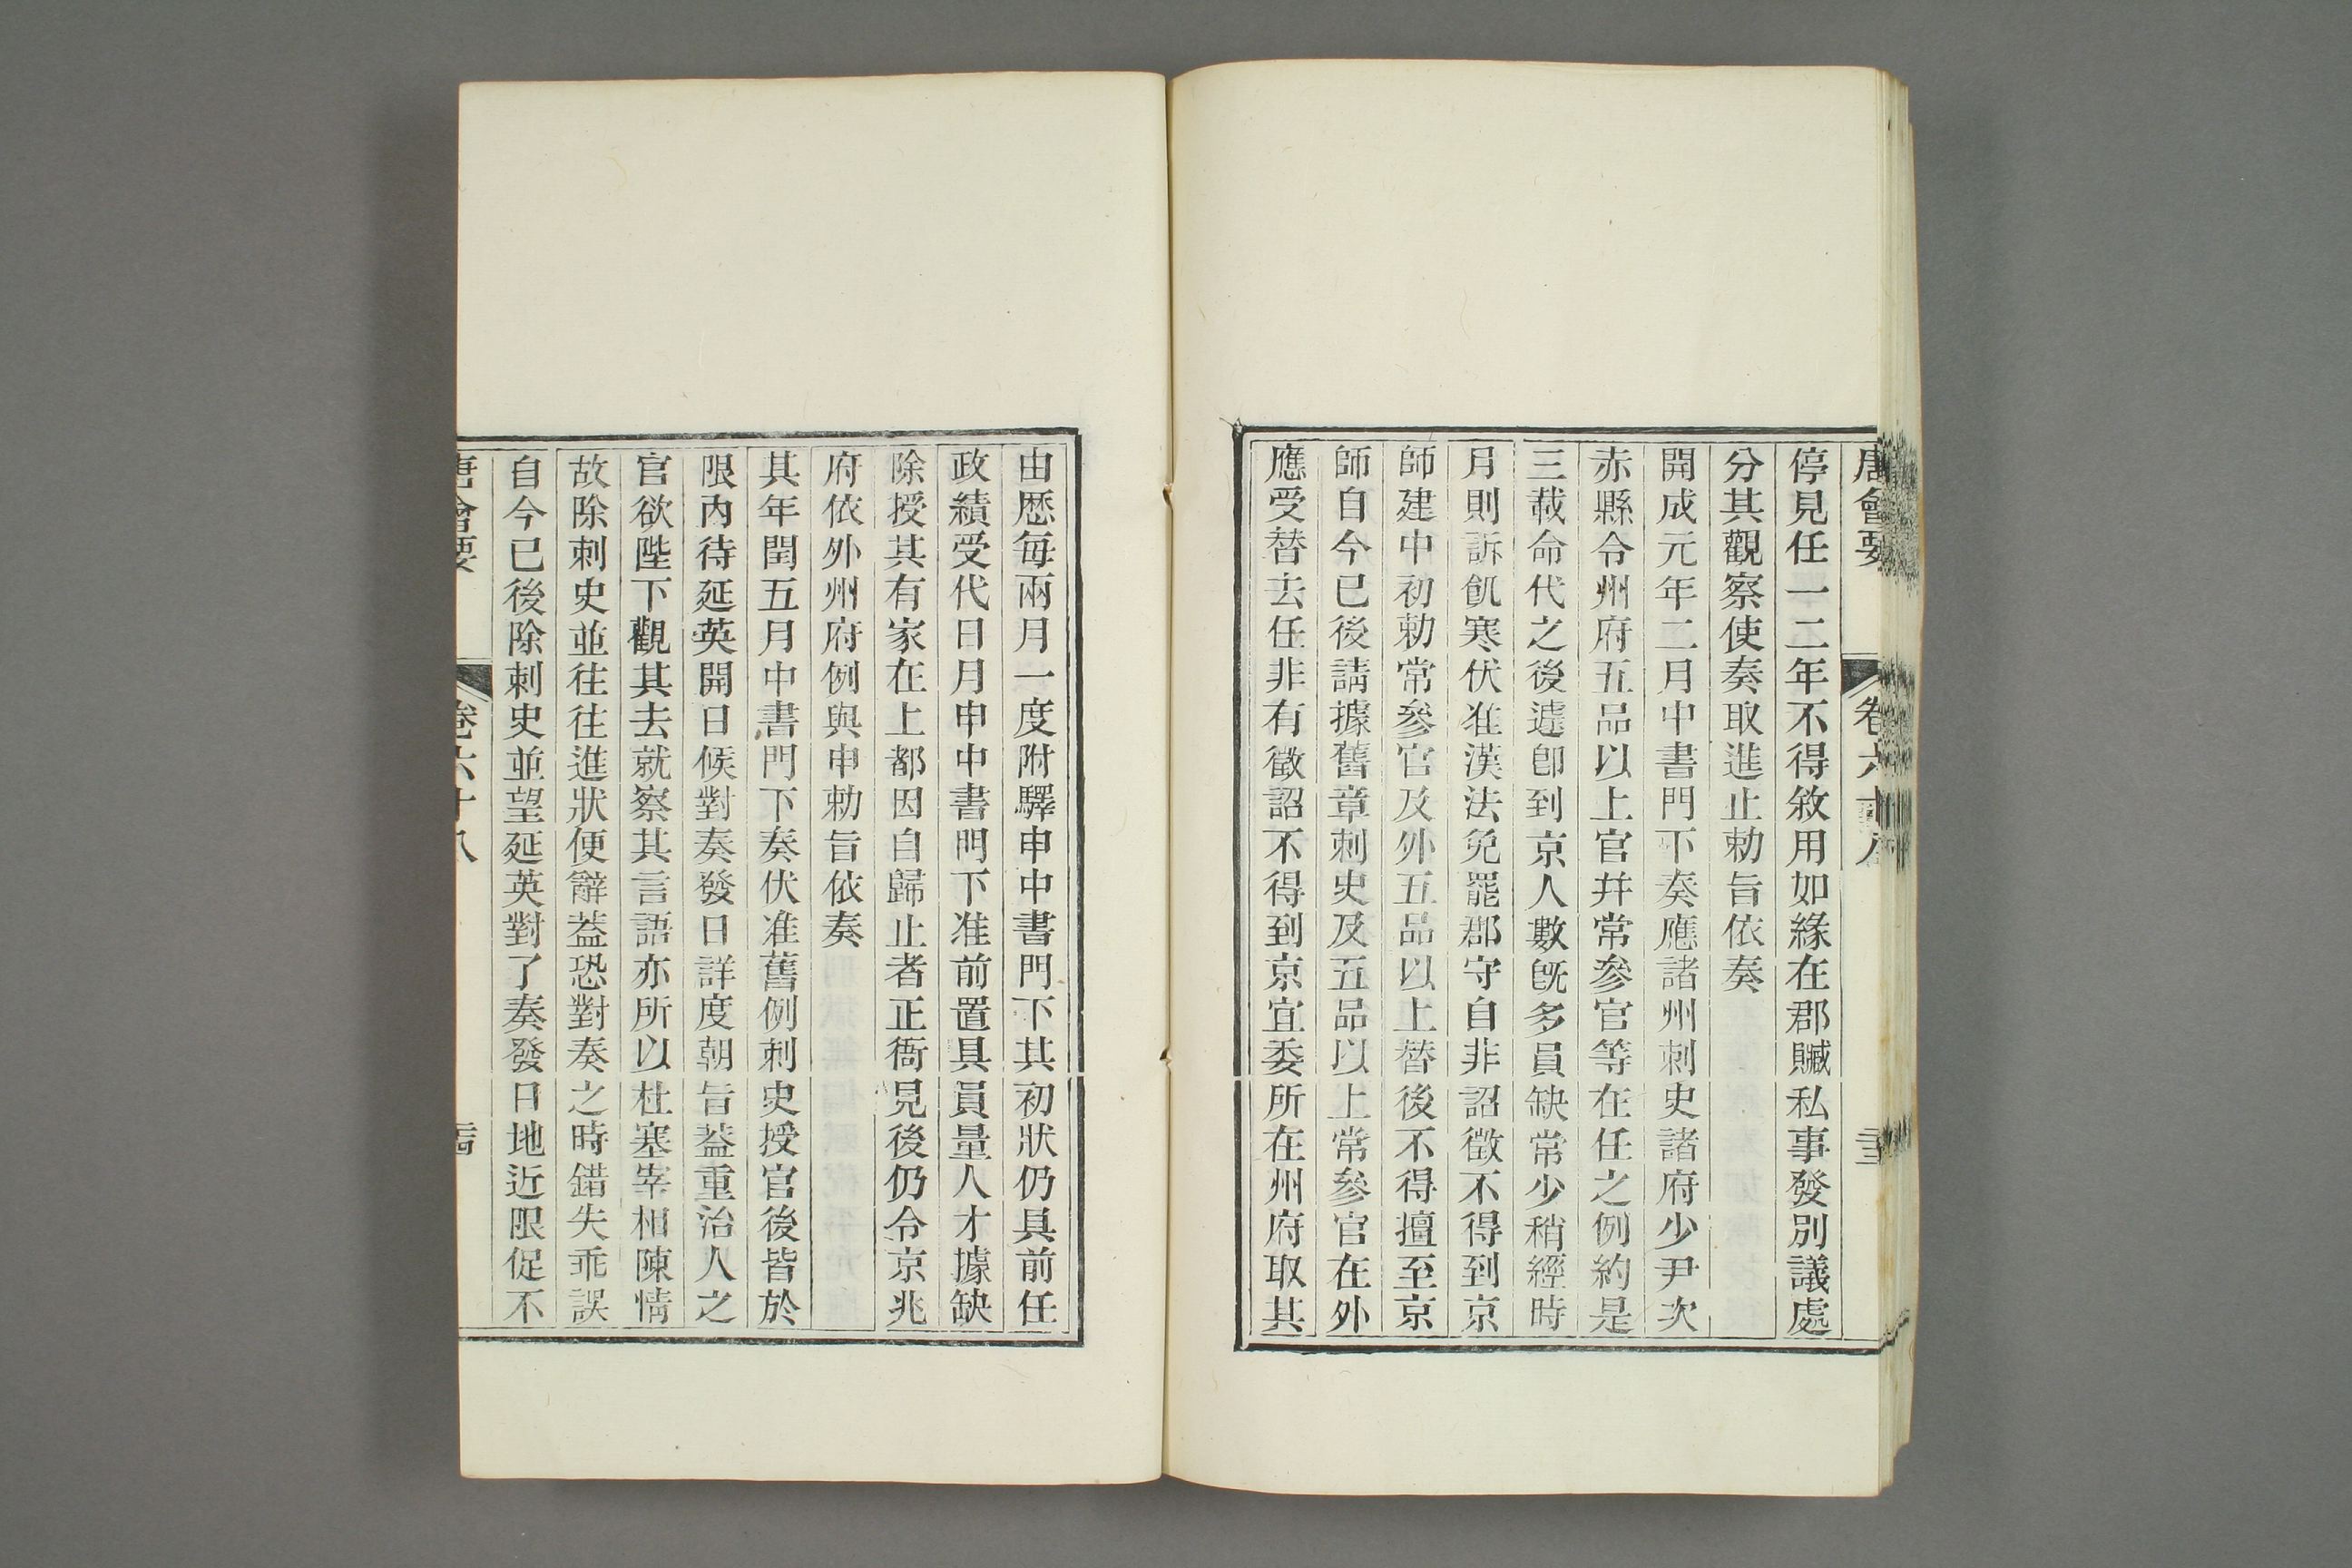 唐會要 卷六十八
停見任一二年不得敘用如緣在郡贓私事發別議處
分其觀察使奏取進止勅旨依奏
開成元年二月中書門下奏應諸州刺史諸府少尹次
赤縣令州府五品以上官幷常參官等在任之例約是
三載命代之後遽卽到京人數旣多員缺常少稍經時
月則訴飢寒伏准漢法免罷郡守自非詔徵不得到京
師建中初勅常參官及外五品以上替後不得擅至京
師自今已後請據舊章刺史及五品以上常參官在外
應受替去任非有徵詔不得到京宜委所在州府取其
由歷每兩月一度附驛申中書門下其初狀仍具前任
政績受代日月申中書門下准前置具員量人才據缺
除授其有家在上都因自歸止者正衙見後仍令京兆
府依外州府例與申勅旨依奏
其年閏五月中書門下奏伏准舊例刺史授官後皆於
限內待延英開日候對奏發日詳度朝旨葢重治人之
官欲陛下觀其去就察其言語亦所以杜塞宰相陳情
故除刺史並往往進狀便辭葢恐對奏之時錯失乖誤
自今已後除刺史並望延英對了奏發日地近限促不
唐會要 卷六十八